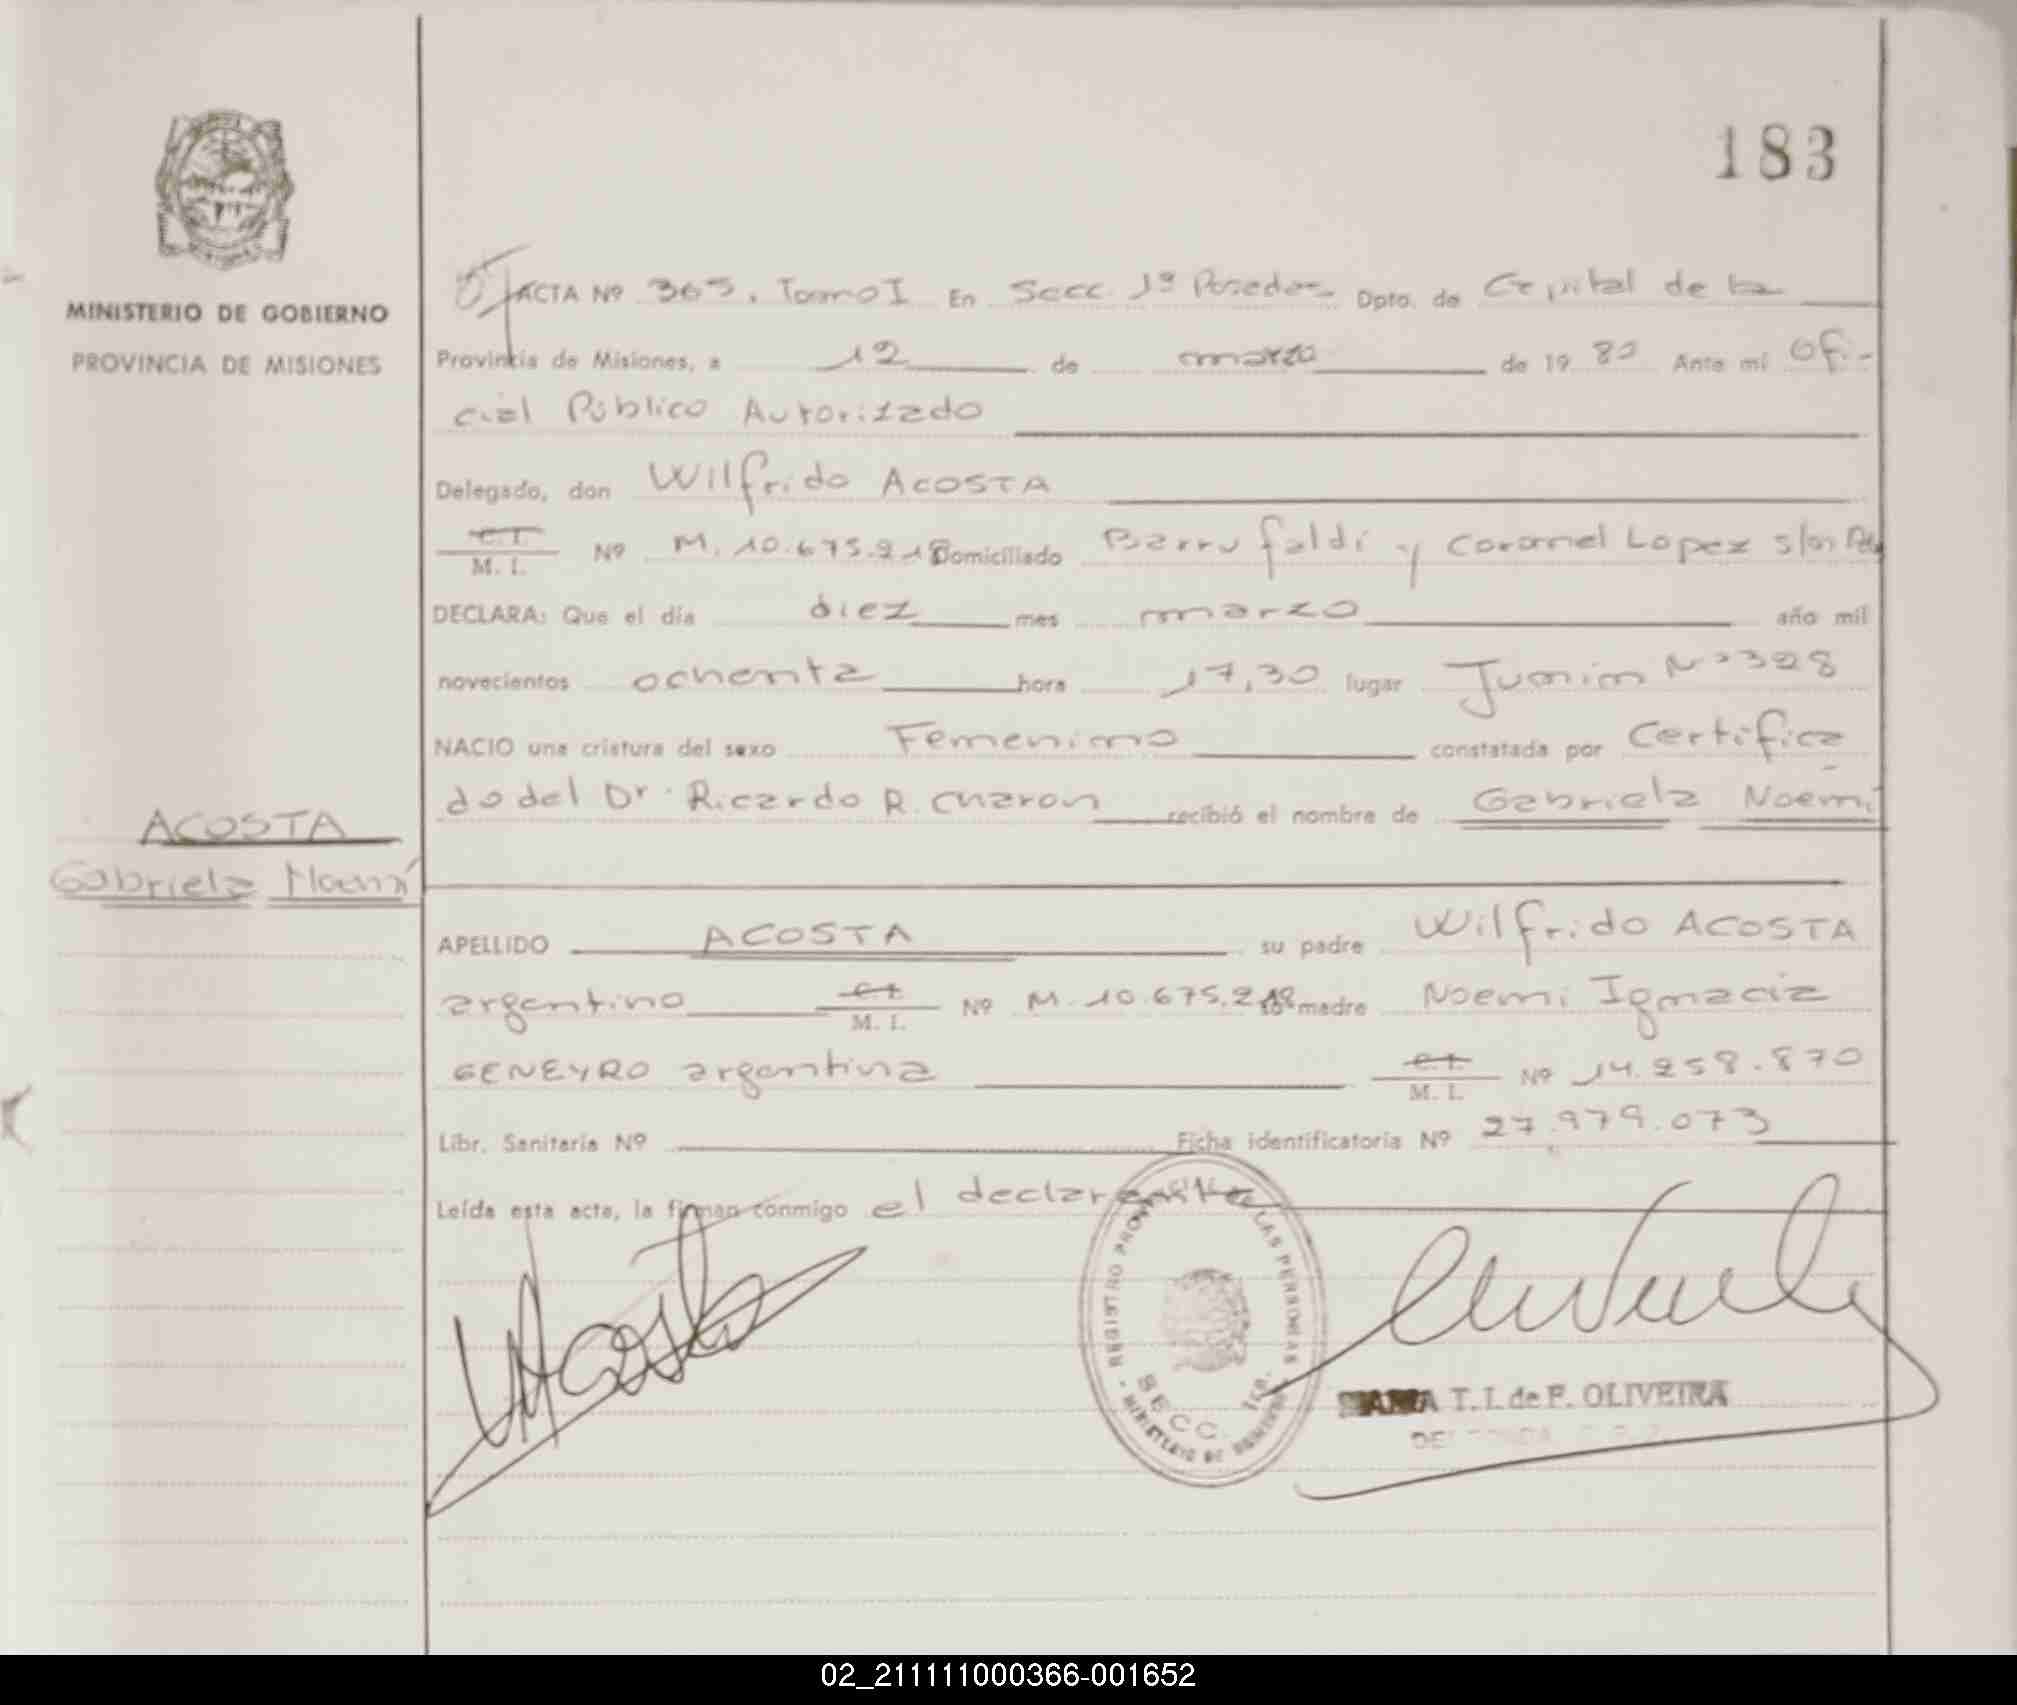 183
MINISTERIO DE GOBIERNO
PROVINCIA DE MISIONES
ACTA Nº 365. Tomo I En Secc. 1ª Posadas Dpto. de Capital de la
Provincia de Misiones, a 12 de marzo de 19 80 Ante mi Ofi-
cial Público Autorizado
Delegado, don Wilfrido ACOSTA
C.I.
M. I. Nº M. 10.675.218 Domiciliado Barrufaldi y Coronel Lopez s/n
DECLARA: Que el día diez mes marzo año mil
novecientos ochenta hora 17,30 lugar Junin Nº 328
NACIO una criatura del sexo Femenino constatada por Certifica
do del Dr. Ricardo R. Charon recibió el nombre de Gabriela Noemí
ACOSTA
Gabriela Noemí
APELLIDO ACOSTA su padre Wilfrido ACOSTA
argentino C.I.
M. I. Nº M. 10.675.218 su madre Noemi Ignacia
GENEYRO argentina C.I.
M. I. Nº 14.258.870
Libr. Sanitaria Nº Ficha identificatoria Nº 27.979.073
Leída esta acta, la firman conmigo el declarante
WAcosta
REGISTRO PROVINCIAL DE LAS PERSONAS
SECC. 1ra.
MINISTERIO DE GOBIERNO
MARIA T. I. de F. OLIVEIRA
02_211111000366-001652